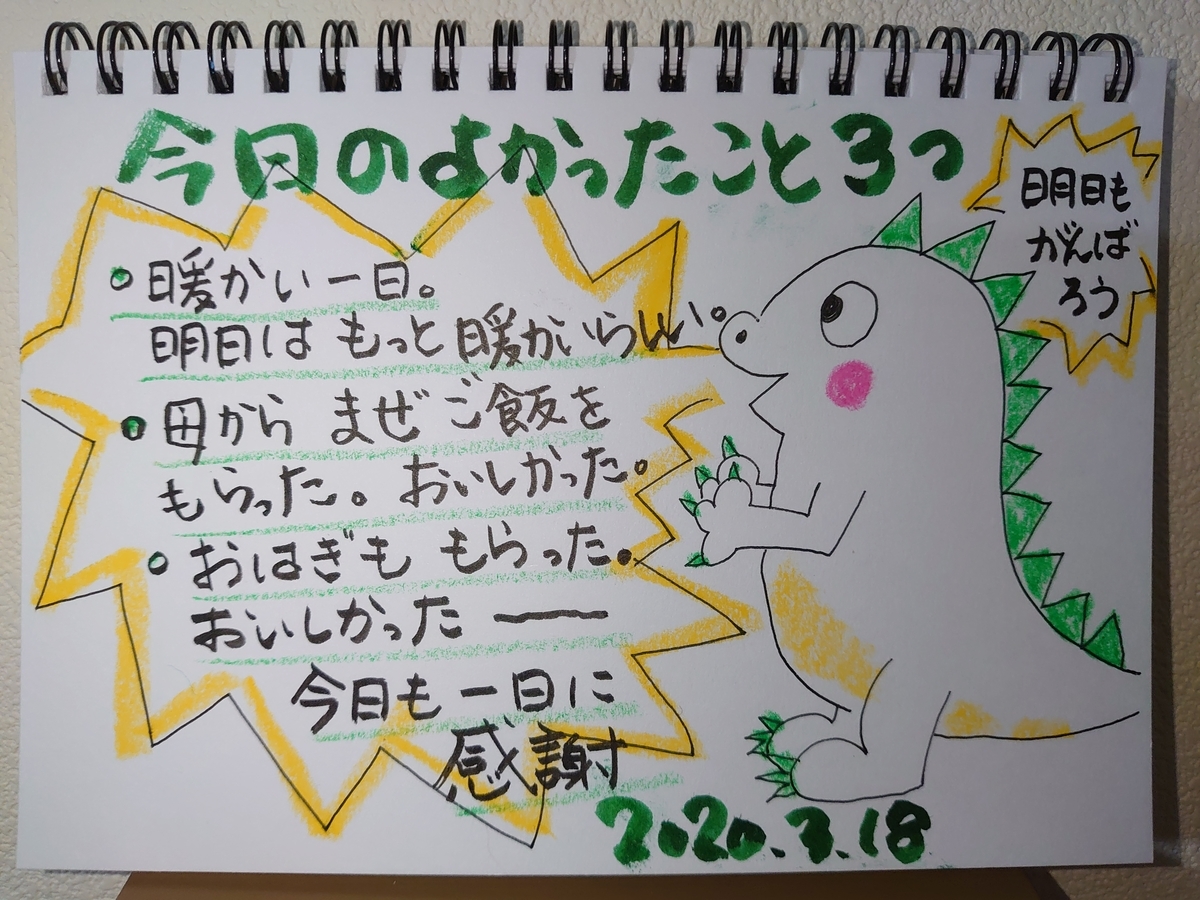 今日のよかったこと3つ
明日も
がんば
ろう
・暖かい一日。
明日はもっと暖かいらしい。
・母からまぜご飯を
もらった。おいしかった。
・おはぎももらった。
おいしかったー
今日も一日に
感謝
2020.3.18